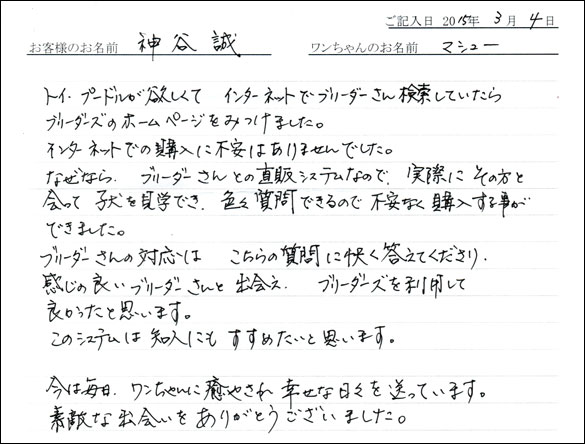 ご記入日 2015年 3月 4日
お客様のお名前 神谷 誠 ワンちゃんのお名前 マシュー
トイ・プードルが欲しくて インターネットでブリーダーさん検索していたら
ブリーダーズのホームページをみつけました。
インターネットでの購入に不安はありませんでした。
なぜなら、ブリーダーさんとの直販システムなので、実際にその方と
会って子犬を見学でき、色々質問できるので不安なく購入する事が
できました。
ブリーダーさんの対応は こちらの質問に快く答えてくださり、
感じの良いブリーダーさんと出会え、ブリーダーズを利用して
良かったと思います。
このシステムは知人にもすすめたいと思います。
今は毎日、ワンちゃんに癒やされ幸せな日々を送っています。
素敵な出会いをありがとうございました。